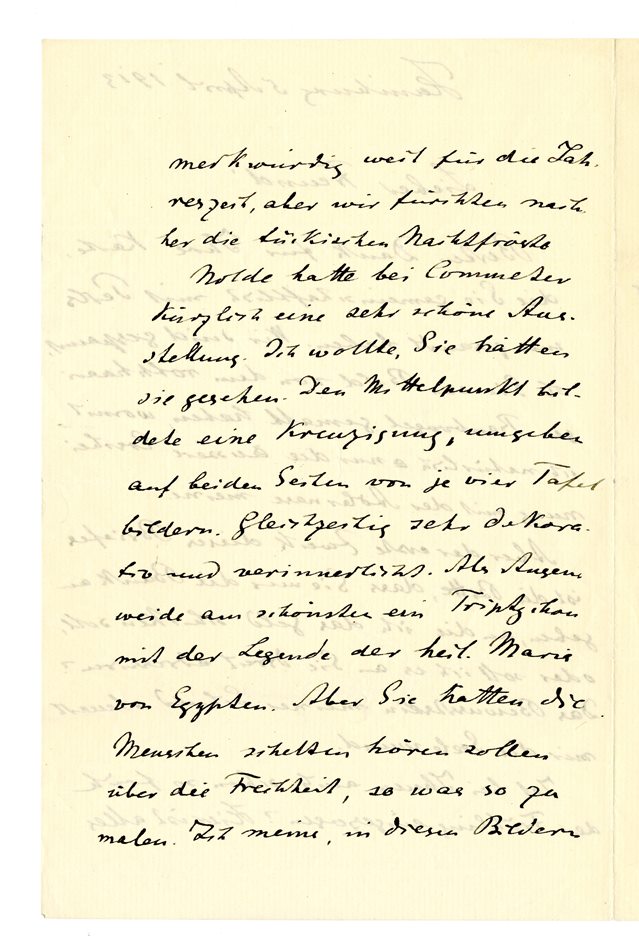 merkwürdig weit für die Jah-
reszeit, aber wir fürchten nach-
her die tückischen Nachtfröste
Nolde hatte bei Commeter
kürzlich eine sehr schöne Aus-
stellung. Ich wollte, Sie hätten
sie gesehen. Den Mittelpunkt bil-
dete eine Kreuzigung, umgeben
auf beiden Seiten von je vier Tafel
bildern. Gleichzeitig sehr dekora-
tiv und verinnerlicht. Als Augen
weide am schönsten ein Triptychon
mit der Legende der heil. Maria
von Egypten. Aber Sie hätten die
Menschen schelten hören sollen
über die Frechheit, so was so zu
malen. Ich meine, in diesen Bildern